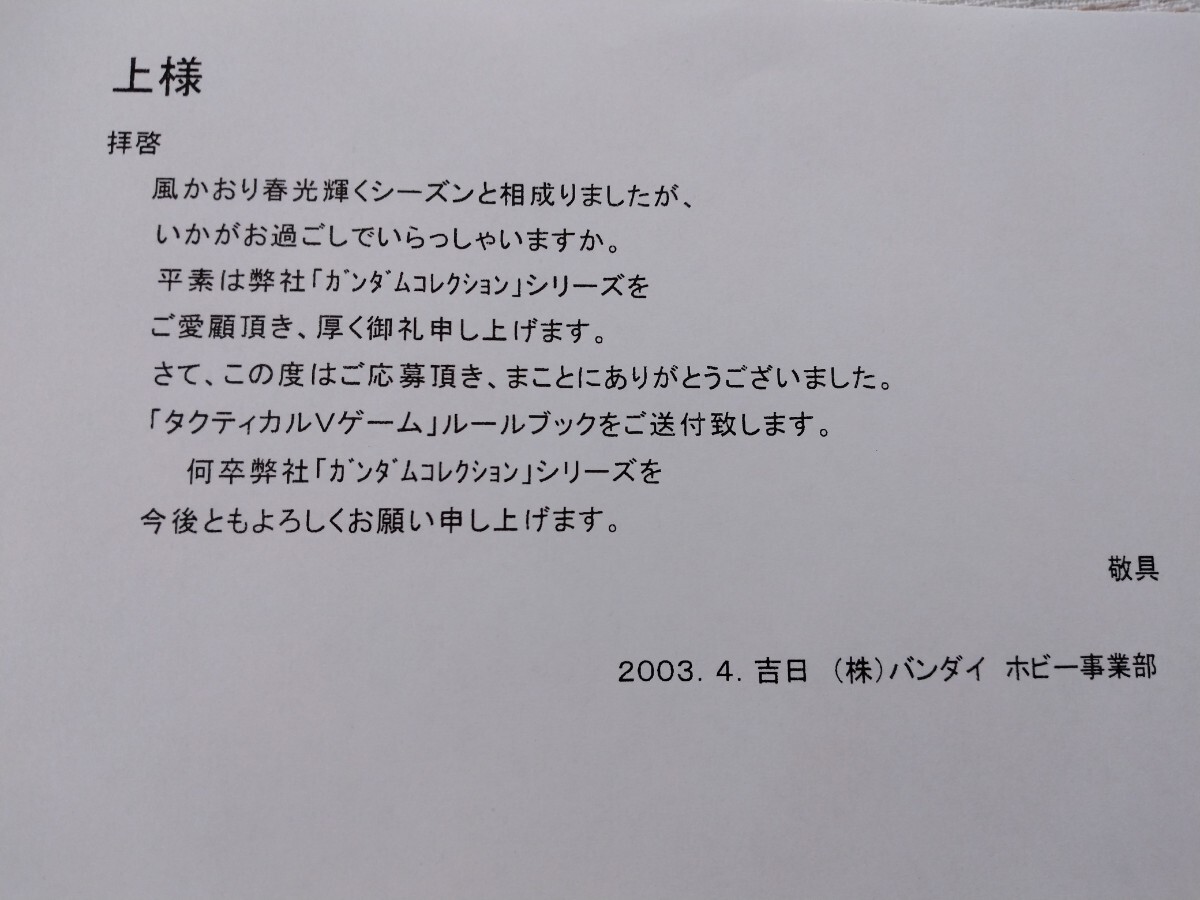 上様
拝啓
風かおり春光輝くシーズンと相成りましたが、
いかがお過ごしでいらっしゃいますか。
平素は弊社「ｶﾞﾝﾀﾞﾑｺﾚｸｼｮﾝ」シリーズを
ご愛顧頂き、厚く御礼申し上げます。
さて、この度はご応募頂き、まことにありがとうございました。
「タクティカルVゲーム」ルールブックをご送付致します。
何卒弊社「ｶﾞﾝﾀﾞﾑｺﾚｸｼｮﾝ」シリーズを
今後ともよろしくお願い申し上げます。
敬具
2003. 4. 吉日 (株)バンダイ ホビー事業部